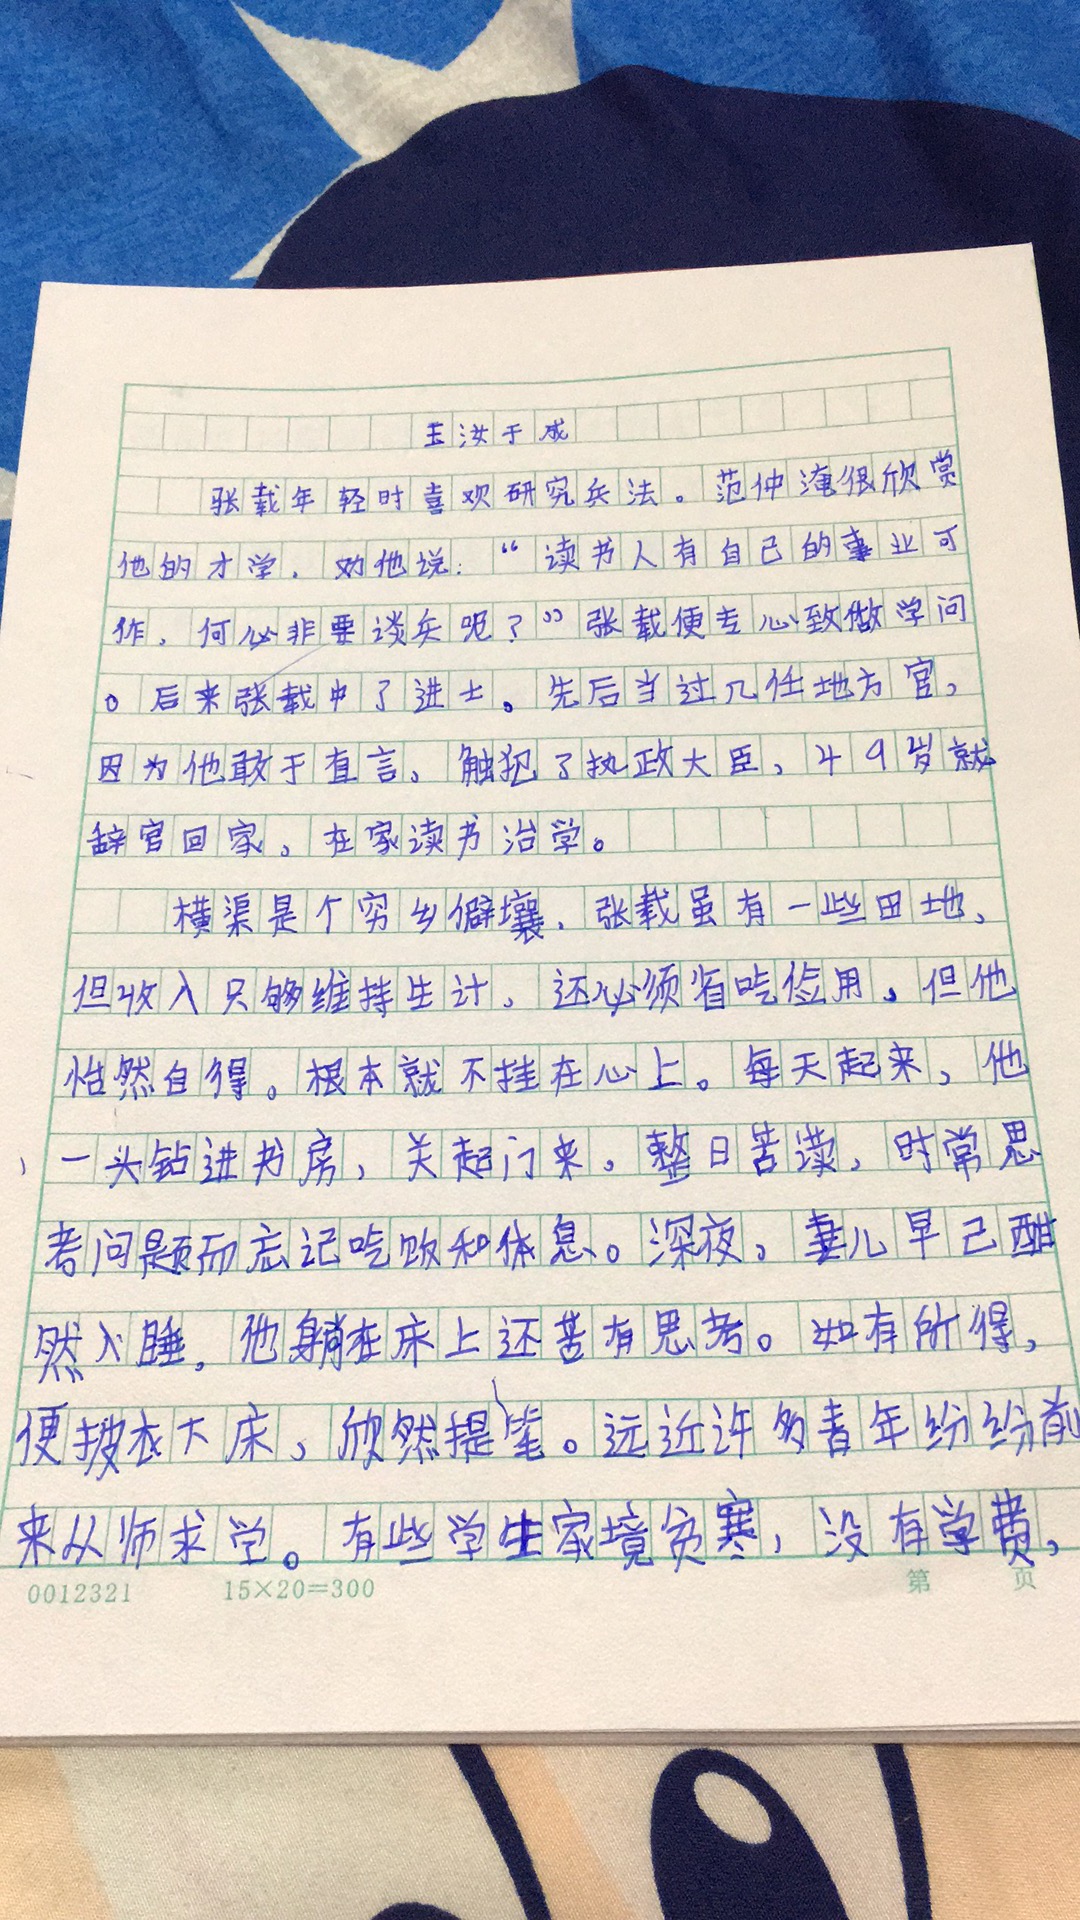 玉汝于成
张载年轻时喜欢研究兵法。范仲淹很欣赏
他的才学,劝他说:“读书人有自己的事业可
作,何必非要谈兵呢?”张载便专心致做学问
。后来张载中了进士。先后当过几任地方官,
因为他敢于直言,触犯了执政大臣,49岁就
辞官回家,在家读书治学。
横渠是个穷乡僻壤,张载虽有一些田地,
但收入只够维持生计,还必须省吃俭用,但他
怡然自得。根本就不挂在心上。每天起来,他
一头钻进书房,关起门来。整日苦读,时常思
考问题而忘记吃饭和休息。深夜,妻儿早已酣
然入睡,他躺在床上还苦有思考。如有所得,
便披衣下床,欣然提笔。远近许多青年纷纷前
来从师求学。有些学生家境贫寒,没有学费,
0012321 15×20=300 第 页